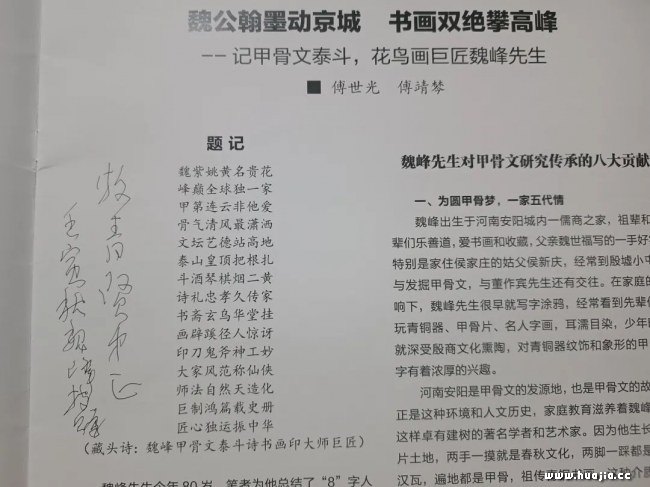 魏公翰墨动京城 书画双绝攀高峰
——记甲骨文泰斗,花鸟画巨匠魏峰先生
■ 傅世光 傅靖棽
题 记
魏紫姚黄名贵花
峰巅全球独一家
甲第连云非他爱
骨气清风最潇洒
文坛艺德站高地
泰山皇顶把根扎
斗酒琴棋烟二黄
诗礼忠孝久传家
书斋玄鸟华堂挂
画辟蹊径人惊讶
印刀鬼斧神工妙
大家风范称仙侠
师法自然天造化
巨制鸿篇载史册
匠心独运振中华
(藏头诗:魏峰甲骨文泰斗诗书画印大师巨匠)
魏峰先生今年80岁,笔者为他总结了“8”字人
魏峰先生对甲骨文研究传承的八大贡献
一、为圆甲骨梦,一家五代情
魏峰出生于河南安阳城内一儒商之家,祖辈和
辈们乐善道,爱书画和收藏,父亲魏世福写的一手好
特别是家住侯家庄的姑父侯新庆,经常到殷墟小中
与发掘甲骨文,与董作宾先生还有交往。在家庭的
响下,魏峰先生很早就写字涂鸦,经常看到先辈
玩青铜器、甲骨片、名人字画,耳濡目染,少年
就深受殷商文化熏陶,对青铜器纹饰和象形的甲
字有着浓厚的兴趣。
河南安阳是甲骨文的发源地,也是甲骨文的故
正是这种环境和人文历史,家庭教育滋养着魏峰
这样卓有建树的著名学者和艺术家。因为他生长
片土地,两手一摸就是春秋文化,两脚一踩都是
汉瓦,遍地都是甲骨,祖传
www.huajia.cc